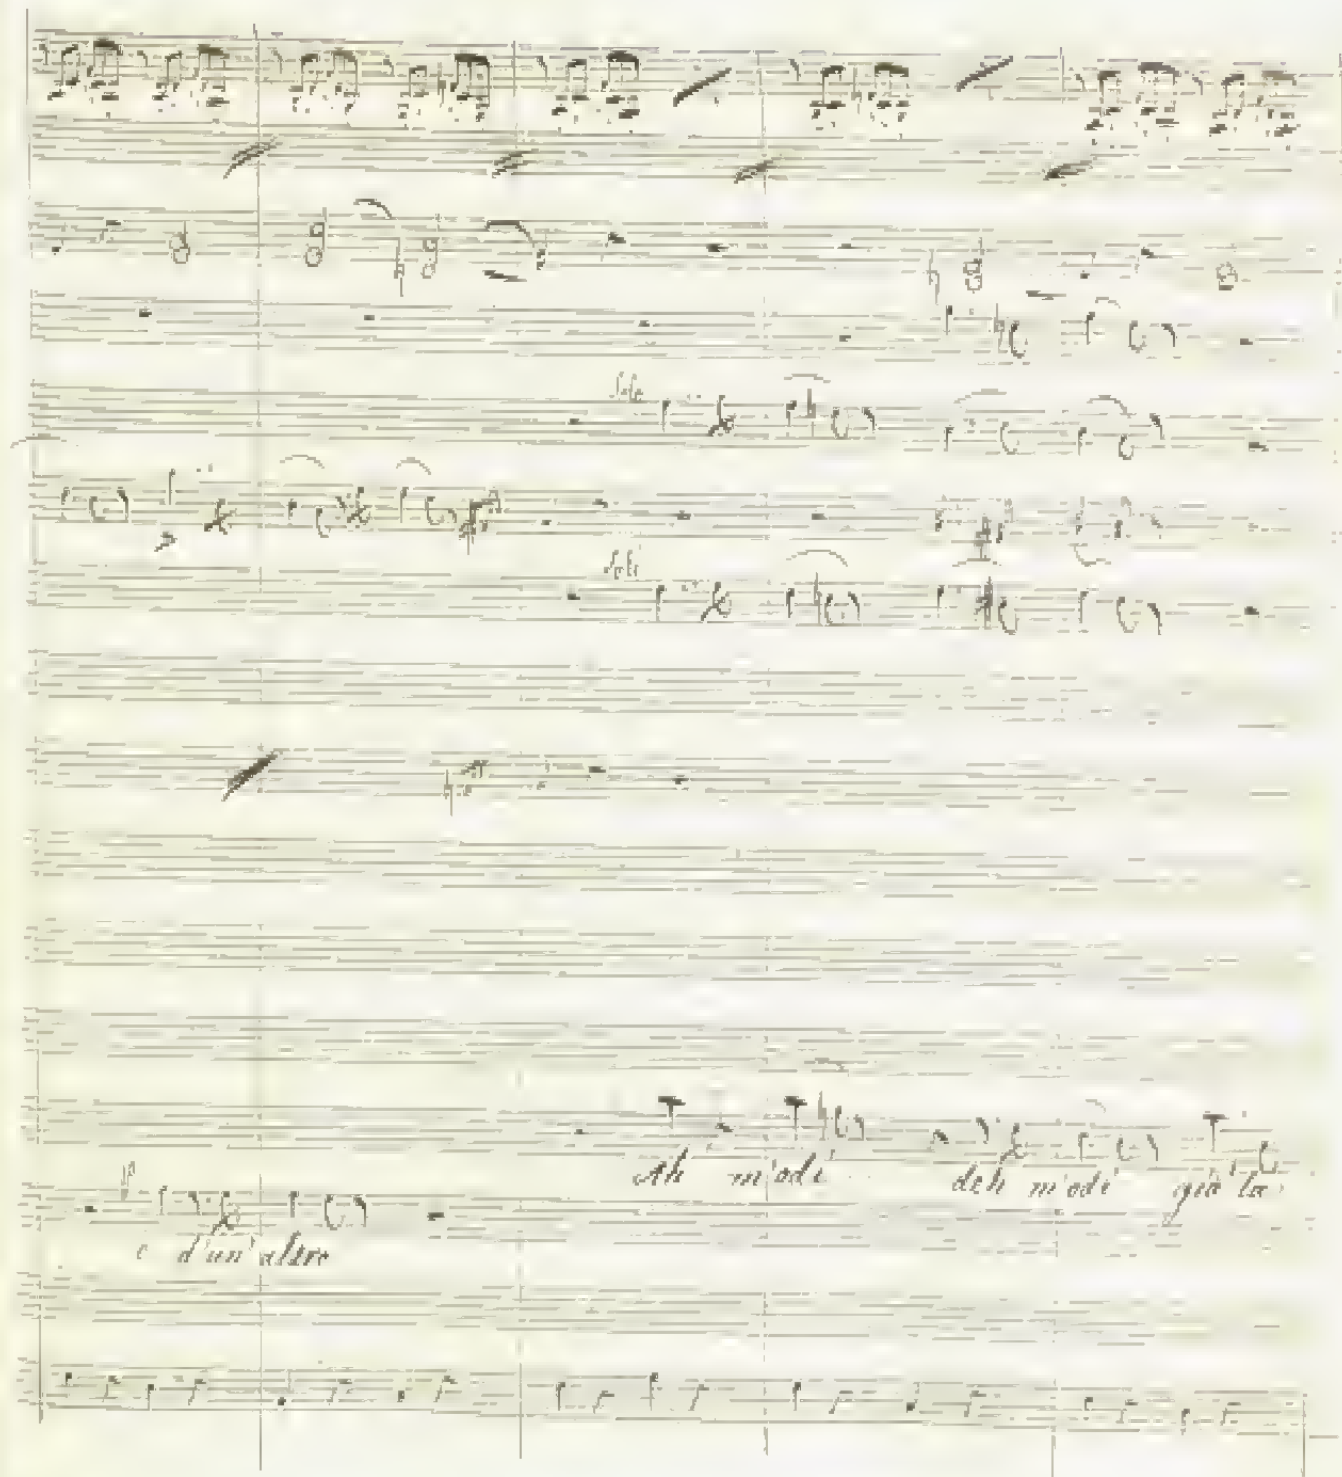 Solo
Soli
Ah m'odi deh m'odi già la
e d'un' altro